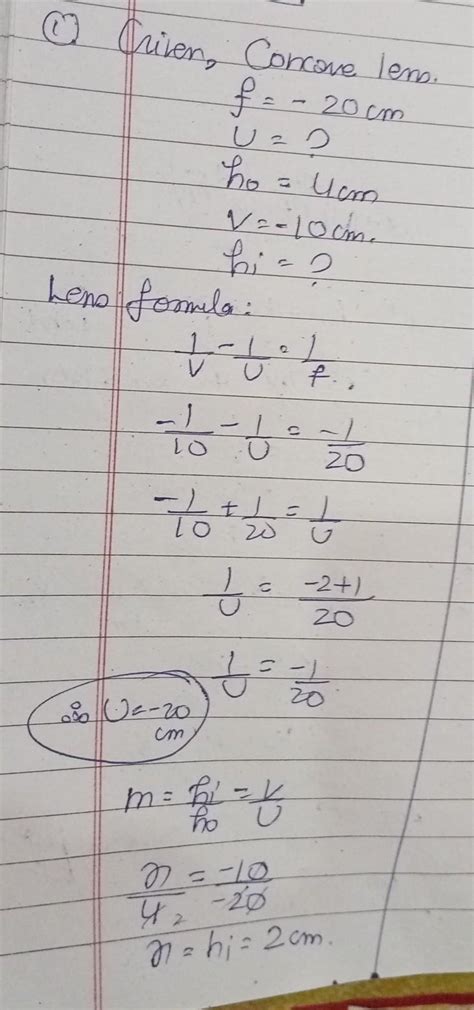 ① Given, Concave lens.
f = - 20 cm
U = ?
ho = 4cm
V = -10 cm.
hi = ?
Lens formula:
1/V - 1/U = 1/f.
-1/10 - 1/U = -1/20
-1/10 + 1/20 = 1/U
1/U = -2+1/20
1/U = -1/20
∴ U = -20 cm
m = hi/ho = V/U
x/4 2 = -10/-20
x = hi = 2 cm.